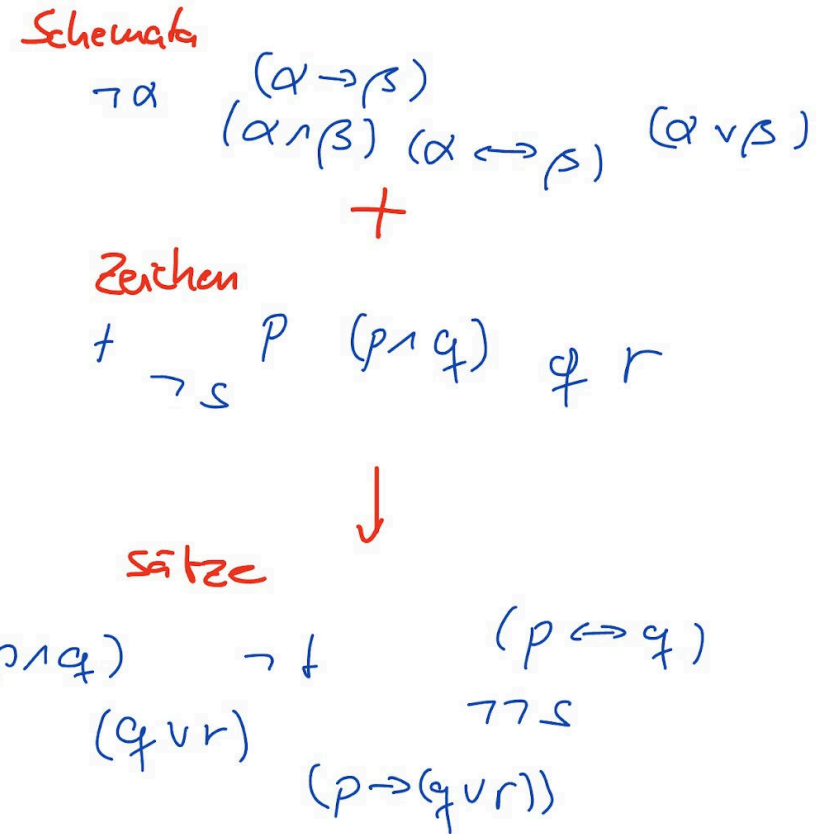 Schemata
¬α (α→β)
(α∧β) (α↔β) (α∨β)
+
Zeichen
t ¬s p (p∧q) q r
↓
Sätze
p∧q) ¬t (p↔q)
(q∨r) ¬¬s
(p→(q∨r))